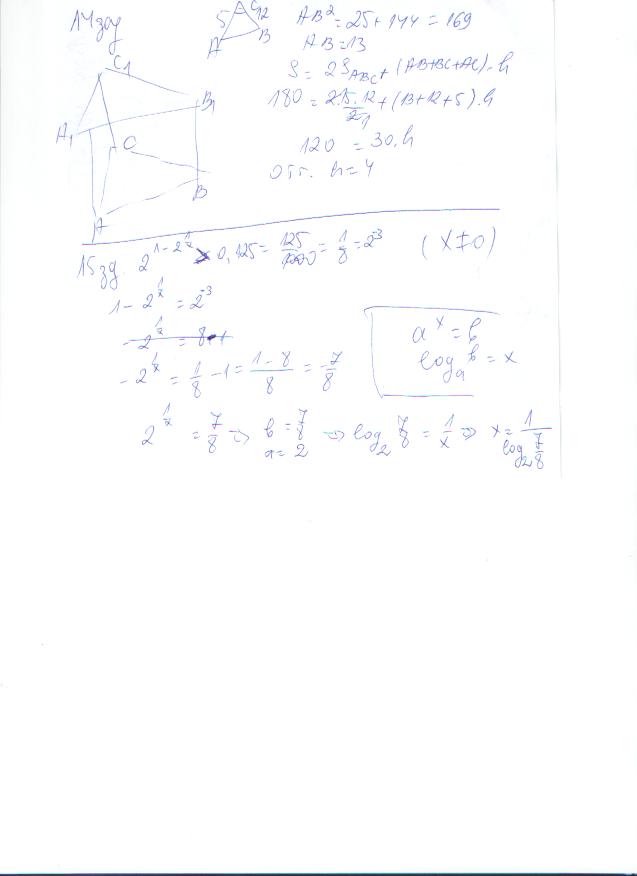 14 зад
C 12
5
A B
AB² = 25 + 144 = 169
AB = 13
S = 2S_ABC + (AB+BC+AC)·h
180 = 2·5·12/2 + (13+12+5)·h
120 = 30·h
отг. h = 4
C1
A1 B1
C
B
A
15 зад. 2^(1-2^(1/x)) 0,125 = 125/1000 = 1/8 = 2^-3 (x≠0)
1 - 2^(1/x) = 2^-3
-2^(1/x) = 1/8 - 1 = (1-8)/8 = -7/8
a^x = b
log_a b = x
2^(1/x) = 7/8 => b = 7/8 a = 2 => log_2 7/8 = 1/x => x = 1/(log_2 7/8)